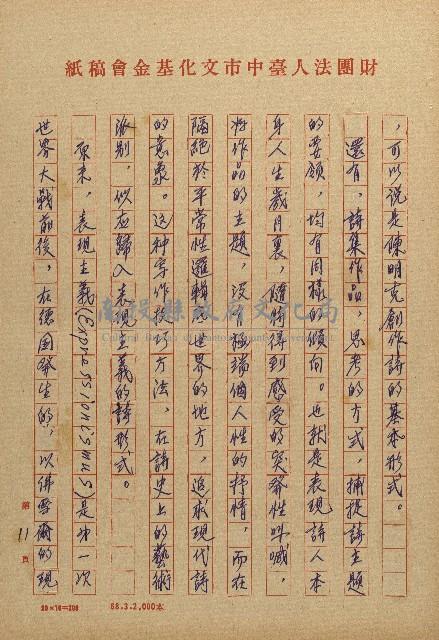 財團法人臺中市文化基金會稿紙
，可以說是陳明克創作詩的基本形式。
還有，詩集作品，思考的方式，捕捉詩主題
的要領，均有同樣的傾向。也就是表現詩人本
身人生歲月裏，隨時得到感受的突發性吶喊，
將作品的主題，沒有極端個人性的抒情，而在
隔絕於平常性邏輯的世界的地方，追求現代詩
的意象。這种写作技巧方法，在詩史上的藝術
派別，似应歸入表現主義的詩形式。
原来，表現主義(Expressionismus)是沖一次
世界大戰前後，在德国發生的，以佛雪爾的現
第11頁
南投縣政府文化局
Cultural Bureau of Nantou County Government
20×10=200
68.3.2,000本